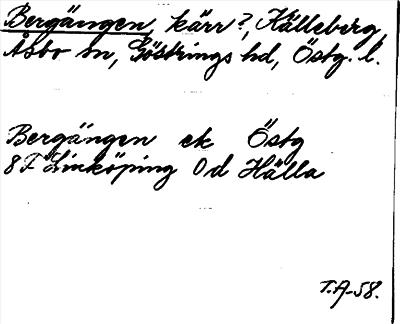 Bergängen, kärr?, Källeberg,
Åsbo sn, Göstrings hd, Östg. l.
Bergängen ek Östg
8F Linköping 0d Hälla
T.A-58.